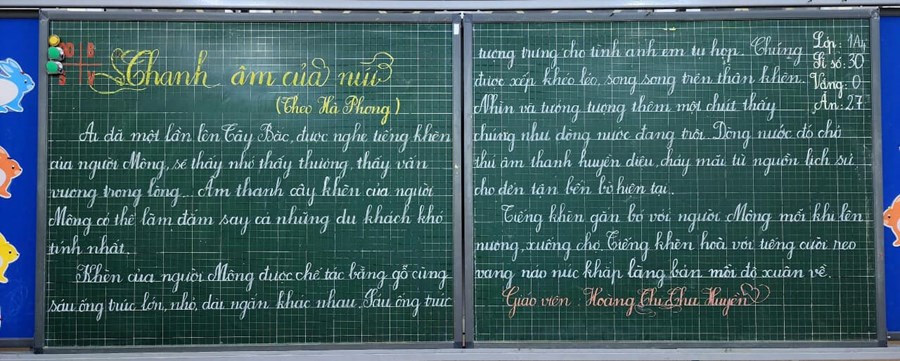 Thanh âm của núi
(Theo Hà Phong)
Ai đã một lần lên Tây Bắc, được nghe tiếng khèn
của người Mông, sẽ thấy nhớ thấy thương, thấy vấn
vương trong lòng... Âm thanh cây khèn của người
Mông có thể làm đắm say cả những du khách khó
tính nhất.
Khèn của người Mông được chế tác bằng gỗ cùng
sáu ống trúc lớn, nhỏ, dài ngắn khác nhau. Sáu ống trúc
tượng trưng cho tình anh em tụ họp. Chúng
được xếp khéo léo, song song trên thân khèn.
Nhìn và tưởng tượng thêm một chút thấy
chúng như dòng nước đang trôi. Dòng nước đó chở
thứ âm thanh huyền diệu, chảy mãi từ nguồn lịch sử
cho đến tận bến bờ hiện tại.
Tiếng khèn gắn bó với người Mông mỗi khi lên
nương, xuống chợ. Tiếng khèn hoà với tiếng cười reo
vang náo nức khắp làng bản mỗi độ xuân về.
Giáo viên: Hoàng Thị Thu Huyền
Lớp: 1A4
Sĩ số: 30
Vắng: 0
Ăn: 27